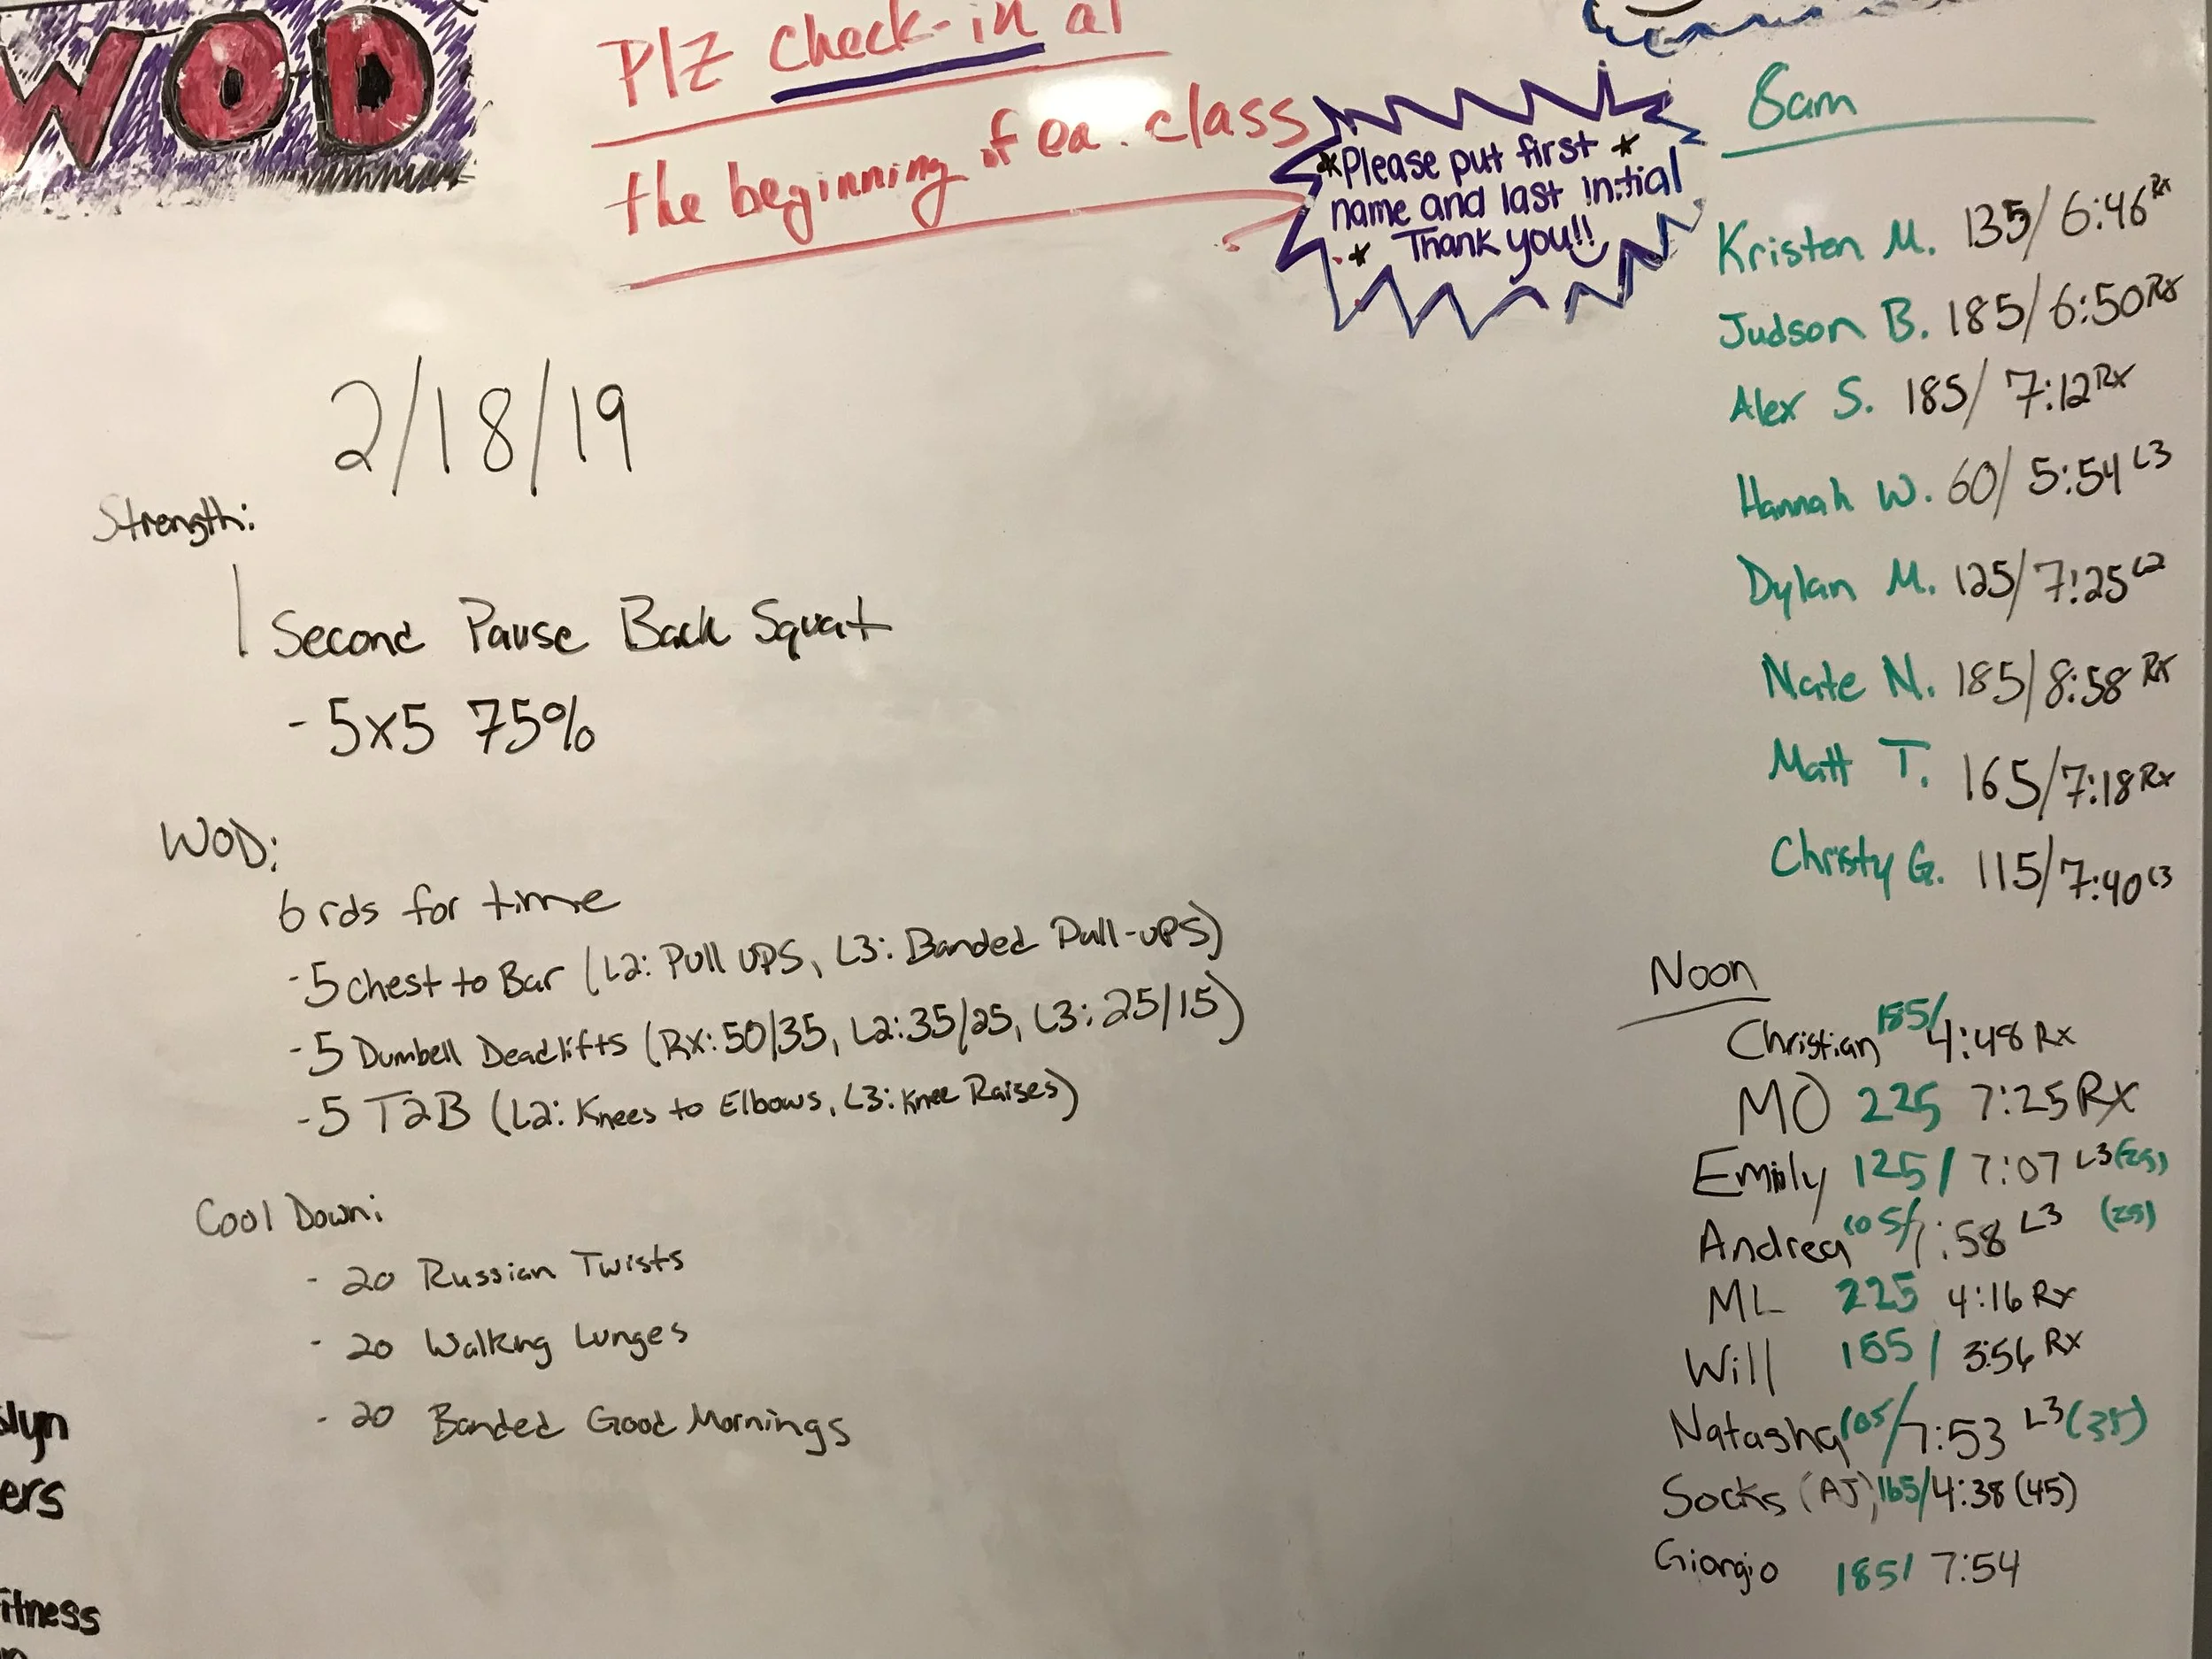 WOD
Plz check-in at
the beginning of ea. class
*Please put first *
name and last initial
* Thank you!!
2/18/19
Strength:
1 Second Pause Back Squat
- 5x5 75%
WOD:
6 rds for time
- 5 chest to Bar (L2: Pull UPS, L3: Banded Pull-ups)
- 5 Dumbell Deadlifts (Rx: 50/35, L2: 35/25, L3: 25/15)
- 5 T2B (L2: Knees to Elbows, L3: Knee Raises)
Cool Down:
- 20 Russian Twists
- 20 Walking Lunges
- 20 Banded Good Mornings
lyn
ers
itness
8am
Kristen M. 135/6:46 Rx
Judson B. 185/6:50 Rx
Alex S. 185/7:12 Rx
Hannah W. 60/5:54 L3
Dylan M. 125/7:25 L2
Nate N. 185/8:58 Rx
Matt T. 165/7:18 Rx
Christy G. 115/7:40 L3
Noon
Christian 185/4:48 Rx
MO 225 7:25 Rx
Emily 125/7:07 L3
Andrea :58 L3 (25)
ML 225 4:16 Rx
Will / 3:56 Rx
Natasha 7:53 L3 (35)
Socks (AJ) 165/4:38 (45)
Giorgio 185/ 7:54